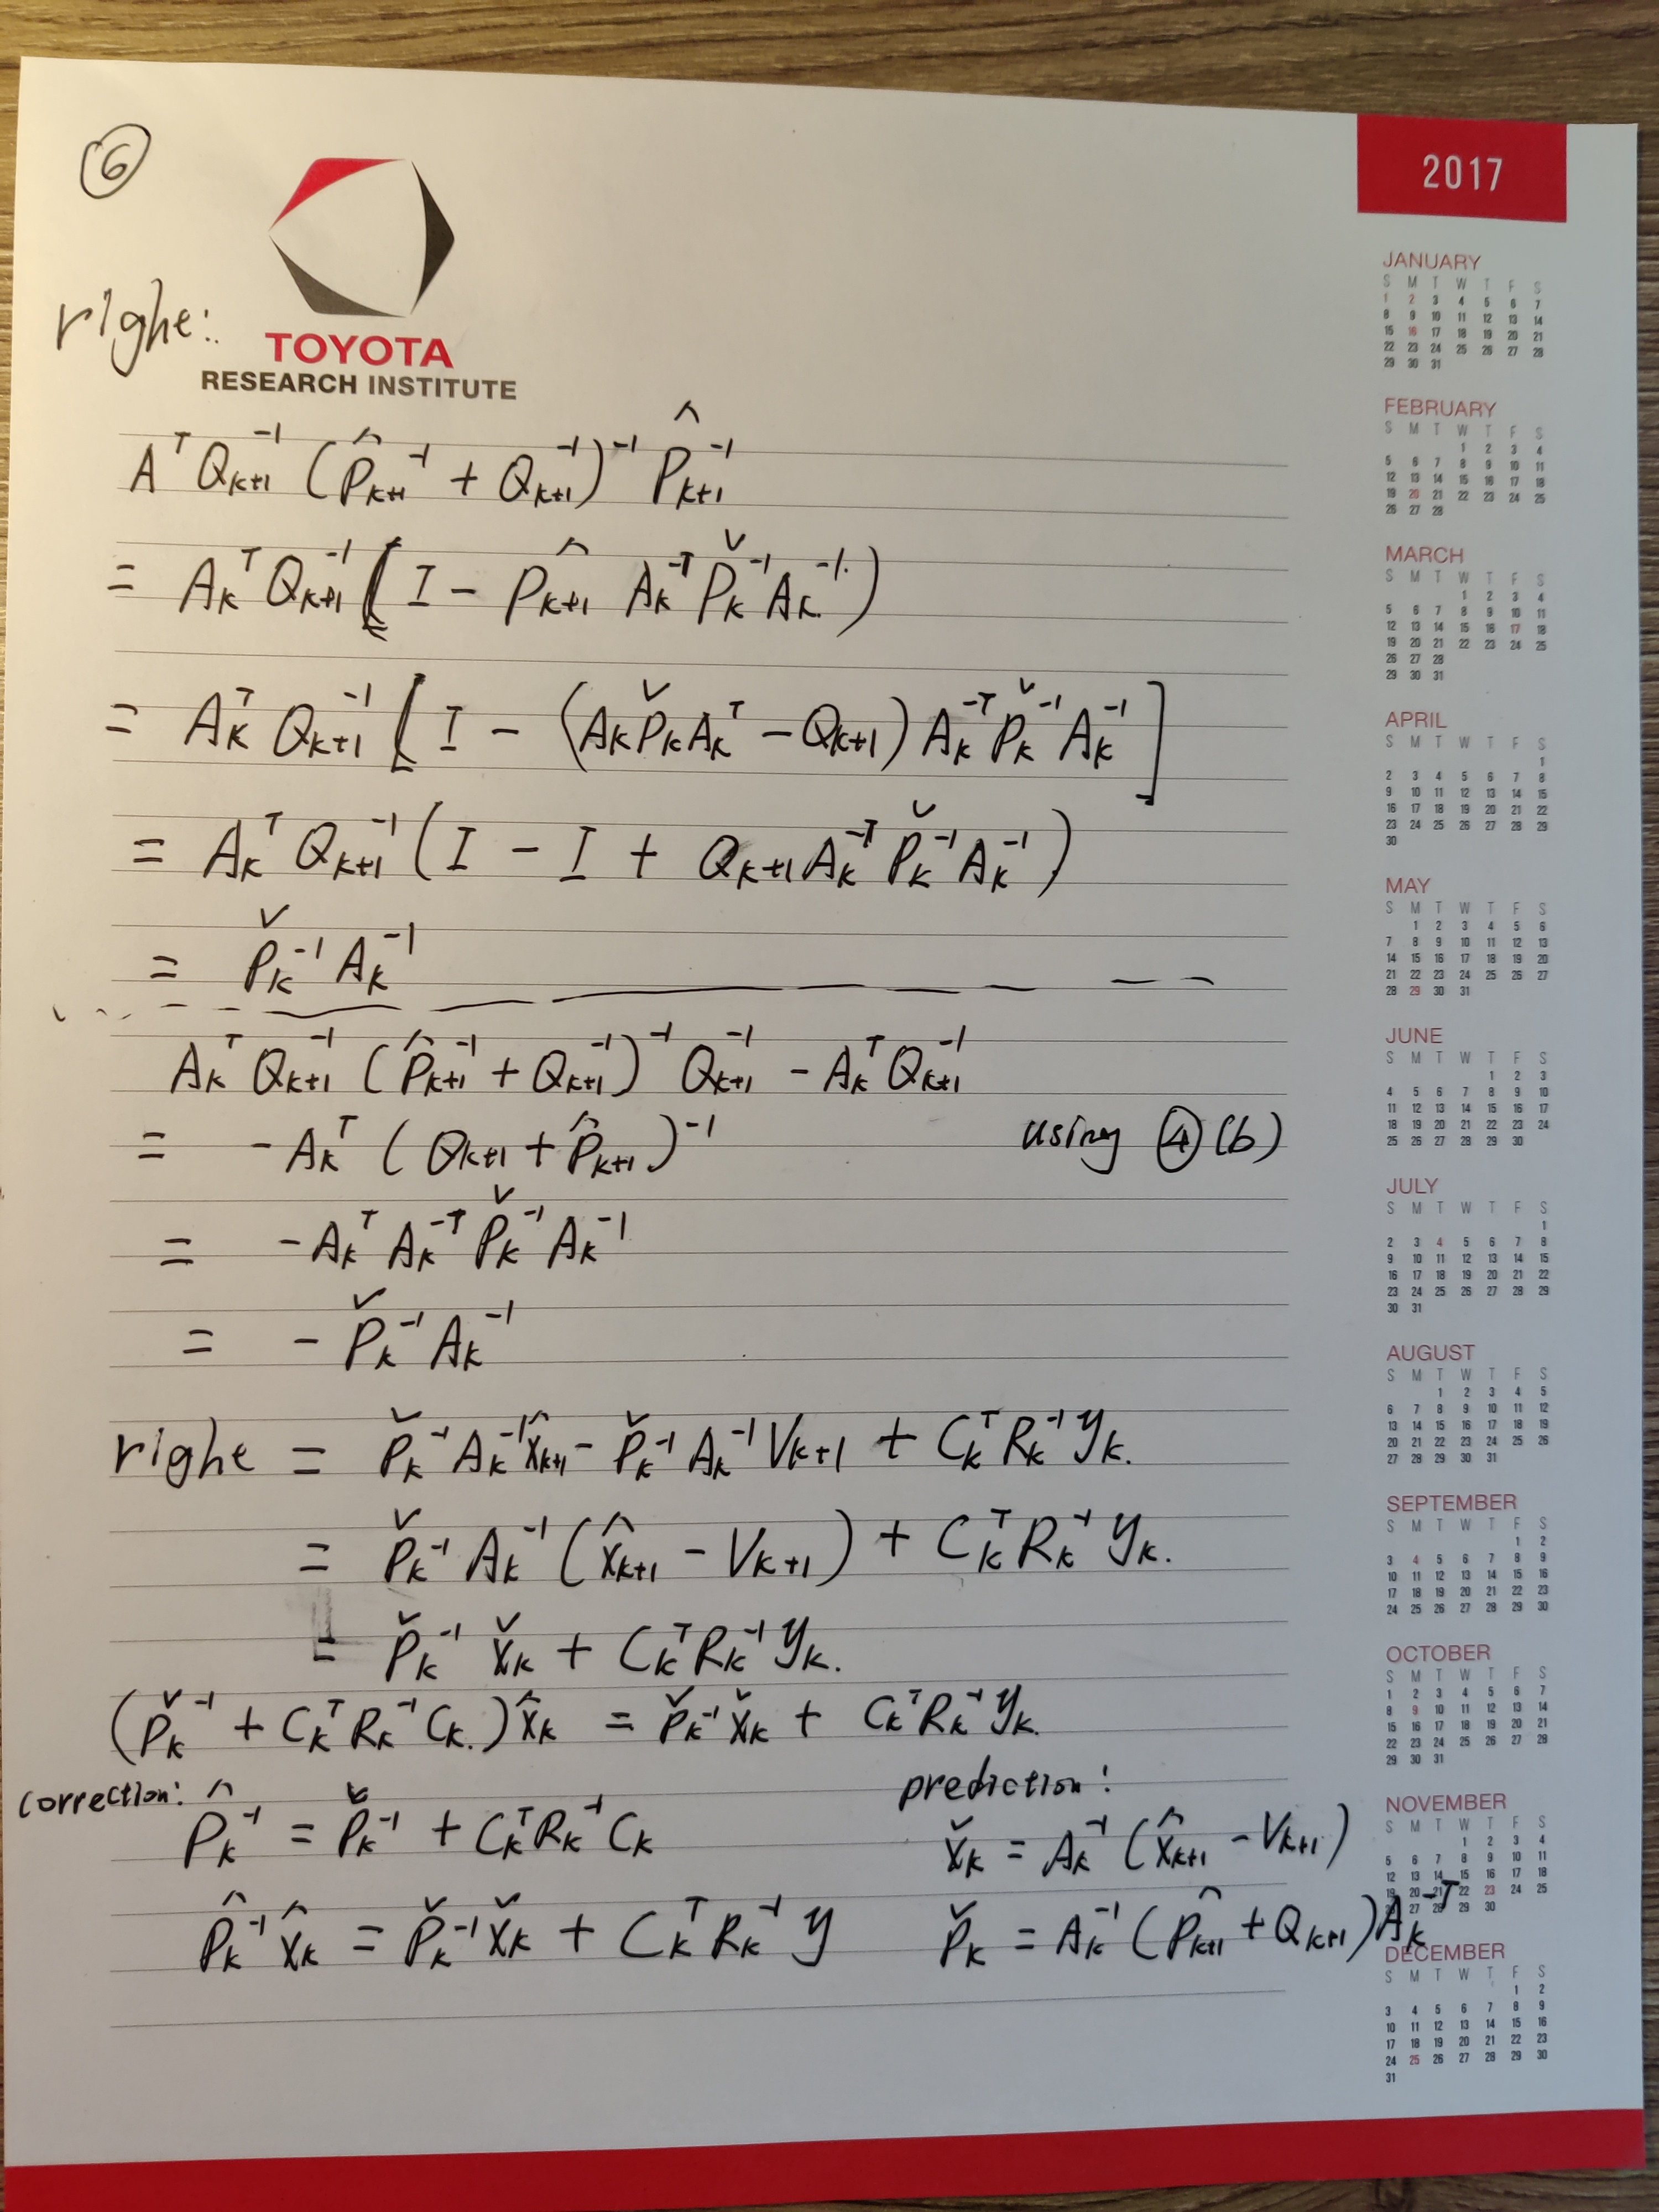 ⑥
righe:
TOYOTA
RESEARCH INSTITUTE
A^T Q_{k+1}^{-1} (P̂_{k+1}^{-1} + Q_{k+1}^{-1})^{-1} P̂_{k+1}^{-1}
= A_k^T Q_{k+1}^{-1} ( I - P̂_{k+1} A_k^{-T} P̌_k^{-1} A_k^{-1} )
= A_k^T Q_{k+1}^{-1} [ I - (A_k P̌_k A_k^T - Q_{k+1}) A_k^{-T} P̌_k^{-1} A_k^{-1} ]
= A_k^T Q_{k+1}^{-1} ( I - I + Q_{k+1} A_k^{-T} P̌_k^{-1} A_k^{-1} )
= P̌_k^{-1} A_k^{-1}
A_k^T Q_{k+1}^{-1} (P̂_{k+1}^{-1} + Q_{k+1}^{-1})^{-1} Q_{k+1}^{-1} - A_k^T Q_{k+1}^{-1}
= - A_k^T ( Q_{k+1} + P̂_{k+1} )^{-1} using ④(b)
= - A_k^T A_k^{-T} P̌_k^{-1} A_k^{-1}
= - P̌_k^{-1} A_k^{-1}
righe = P̌_k^{-1} A_k^{-1} x̂_{k+1} - P̌_k^{-1} A_k^{-1} V_{k+1} + C_k^T R_k^{-1} y_k.
= P̌_k^{-1} A_k^{-1} ( x̂_{k+1} - V_{k+1} ) + C_k^T R_k^{-1} y_k.
= P̌_k^{-1} x̌_k + C_k^T R_k^{-1} y_k.
(P̌_k^{-1} + C_k^T R_k^{-1} C_k.) x̂_k = P̌_k^{-1} x̌_k + C_k^T R_k^{-1} y_k.
correction:
P̂_k^{-1} = P̌_k^{-1} + C_k^T R_k^{-1} C_k
P̂_k^{-1} x̂_k = P̌_k^{-1} x̌_k + C_k^T R_k^{-1} y
prediction:
x̌_k = A_k^{-1} ( x̂_{k+1} - V_{k+1} )
P̌_k = A_k^{-1} ( P̂_{k+1} + Q_{k+1} ) A_k^{-T}
2017
JANUARY
S M T W T F S
1 2 3 4 5 6 7
8 9 10 11 12 13 14
15 16 17 18 19 20 21
22 23 24 25 26 27 28
29 30 31
FEBRUARY
S M T W T F S
1 2 3 4
5 6 7 8 9 10 11
12 13 14 15 16 17 18
19 20 21 22 23 24 25
26 27 28
MARCH
S M T W T F S
1 2 3 4
5 6 7 8 9 10 11
12 13 14 15 16 17 18
19 20 21 22 23 24 25
26 27 28
29 30 31
APRIL
S M T W T F S
1
2 3 4 5 6 7 8
9 10 11 12 13 14 15
16 17 18 19 20 21 22
23 24 25 26 27 28 29
30
MAY
S M T W T F S
1 2 3 4 5 6
7 8 9 10 11 12 13
14 15 16 17 18 19 20
21 22 23 24 25 26 27
28 29 30 31
JUNE
S M T W T F S
1 2 3
4 5 6 7 8 9 10
11 12 13 14 15 16 17
18 19 20 21 22 23 24
25 26 27 28 29 30
JULY
S M T W T F S
1
2 3 4 5 6 7 8
9 10 11 12 13 14 15
16 17 18 19 20 21 22
23 24 25 26 27 28 29
30 31
AUGUST
S M T W T F S
1 2 3 4 5
6 7 8 9 10 11 12
13 14 15 16 17 18 19
20 21 22 23 24 25 26
27 28 29 30 31
SEPTEMBER
S M T W T F S
1 2
3 4 5 6 7 8 9
10 11 12 13 14 15 16
17 18 19 20 21 22 23
24 25 26 27 28 29 30
OCTOBER
S M T W T F S
1 2 3 4 5 6 7
8 9 10 11 12 13 14
15 16 17 18 19 20 21
22 23 24 25 26 27 28
29 30 31
NOVEMBER
S M T W T F S
1 2 3 4
5 6 7 8 9 10 11
12 13 14 15 16 17 18
19 20 21 22 23 24 25
27 28 29 30
DECEMBER
S M T W T F S
1 2
3 4 5 6 7 8 9
10 11 12 13 14 15 16
17 18 19 20 21 22 23
24 25 26 27 28 29 30
31